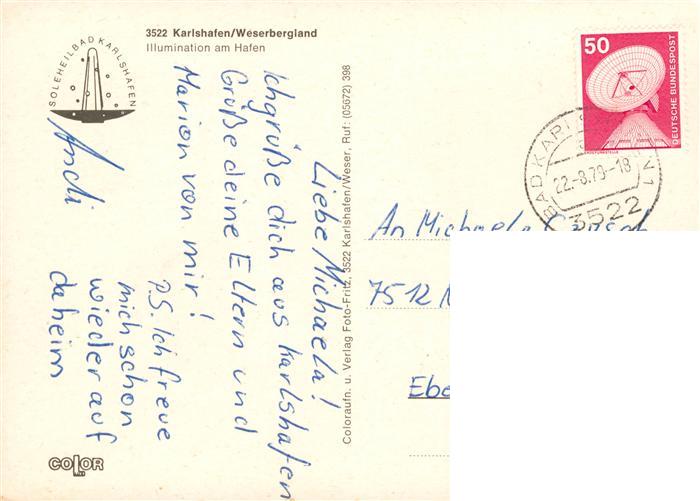 3522 Karlshafen/Weserbergland
Illumination am Hafen
SOLEHEILBAD KARLSHAFEN
Liebe Michaela!
Ichgrüße dich aus Karlshafen
Grüße deine Eltern und
Marion von mir!
Andi
P.S. Ich freue
mich schon
wieder auf
daheim
COLOR
Coloraufn. u. Verlag Foto-Fritz, 3522 Karlshafen/Weser, Ruf: (05672) 398
50
DEUTSCHE BUNDESPOST
BAD KARLS
22.-8.79-18
3522
An Michaela
7512
Ebe